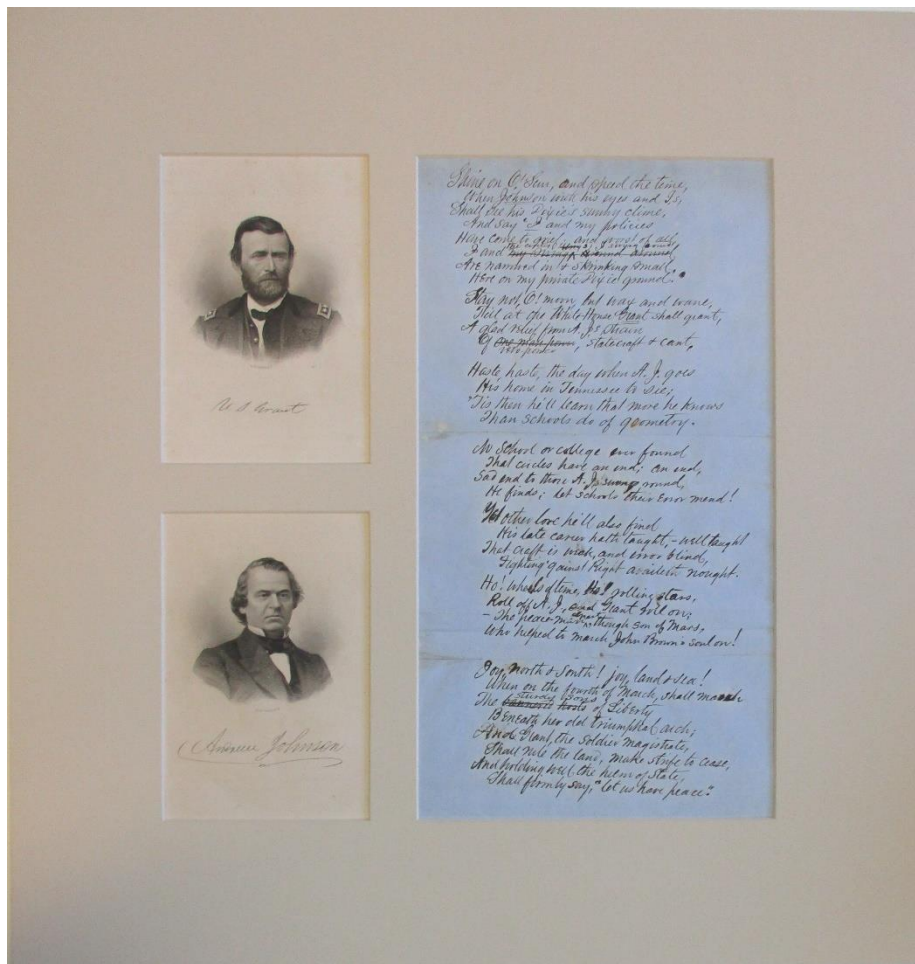 U S Grant
Andrew Johnson
Shine on O! Sun, and speed the time,
When Johnson with his eyes and Is,
Shall see his Dixie's sunny clime,
And say "I and my policies
Have come to grief, and worst of all
I and my swing around
Are narrowed in & shrinking small
Here on my private Dixie ground".
Stay not, O! moon, but wax and wane,
Till at the White House Grant shall grant,
A glad relief from A. Js strain
Of one man power, statecraft & cant,
veto power
Haste, haste, the day when A. J. goes
His home in Tennessee to see;
'Tis then he'll learn that more he knows
Than schools do of geometry.
No School or college ever found
That circles have an end; an end,
Sad end to those A. J. swung round
He finds; let schools their error mend!
Yet other lore he'll also find
His late career hath taught, - well taught
That craft is weak, and error blind,
Fighting 'gainst Right availeth nought.
Ho! wheels of time, Ho! rolling stars,
Roll off A. J., and Grant roll on;
- The peace man, though son of Mars,
Who helped to march John Brown's soul on!
Joy, north & South! joy, land & sea!
When on the fourth of March, shall march
sturdy sons
The hosts of Liberty
Beneath her old triumphal arch;
And Grant, the soldier magistrate,
Shall rule the land, make strife to cease,
And holding well the helm of State,
Shall firmly say, "let us have peace".